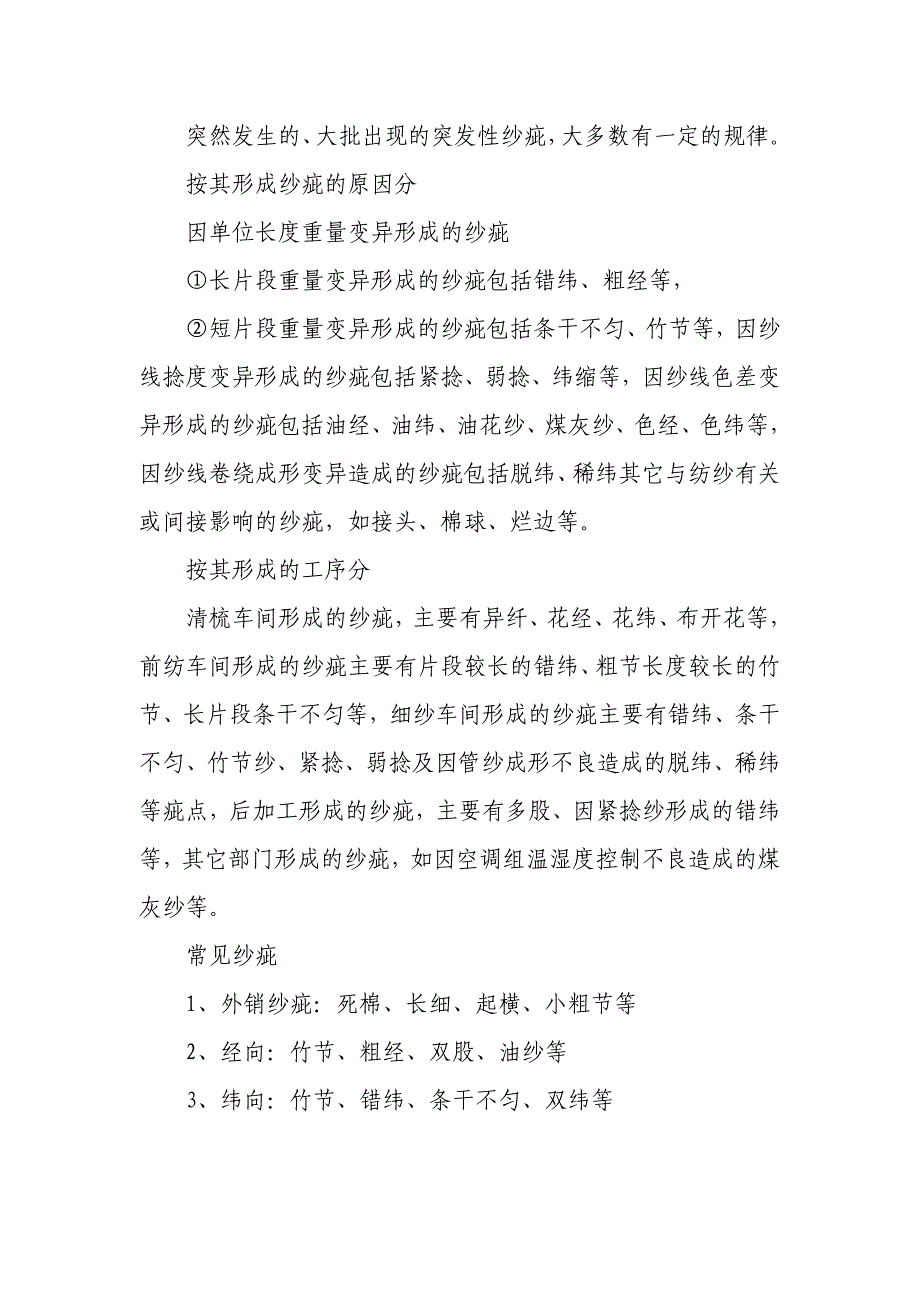 突然发生的、大批出现的突发性纱疵,大多数有一定的规律。
按其形成纱疵的原因分
因单位长度重量变异形成的纱疵
①长片段重量变异形成的纱疵包括错纬、粗经等,
②短片段重量变异形成的纱疵包括条干不匀、竹节等,因纱
线捻度变异形成的纱疵包括紧捻、弱捻、纬缩等,因纱线色差变
异形成的纱疵包括油经、油纬、油花纱、煤灰纱、色经、色纬等,
因纱线卷绕成形变异造成的纱疵包括脱纬、稀纬其它与纺纱有关
或间接影响的纱疵,如接头、棉球、烂边等。
按其形成的工序分
清梳车间形成的纱疵,主要有异纤、花经、花纬、布开花等,
前纺车间形成的纱疵主要有片段较长的错纬、粗节长度较长的竹
节、长片段条干不匀等,细纱车间形成的纱疵主要有错纬、条干
不匀、竹节纱、紧捻、弱捻及因管纱成形不良造成的脱纬、稀纬
等疵点,后加工形成的纱疵,主要有多股、因紧捻纱形成的错纬
等,其它部门形成的纱疵,如因空调组温湿度控制不良造成的煤
灰纱等。
常见纱疵
1、外销纱疵:死棉、长细、起横、小粗节等
2、经向:竹节、粗经、双股、油纱等
3、纬向:竹节、错纬、条干不匀、双纬等